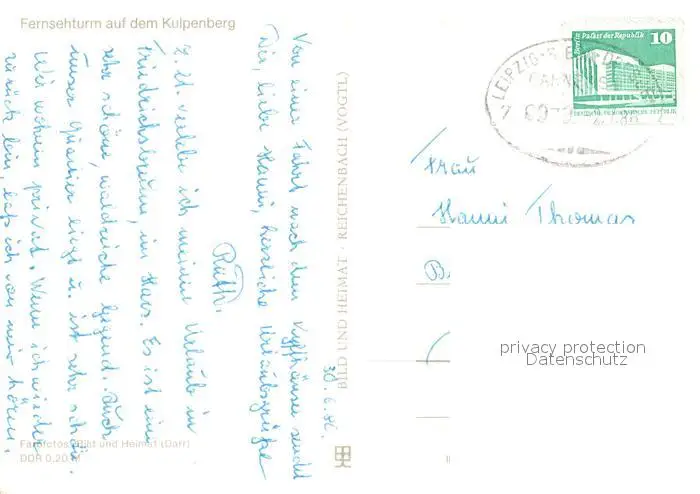 Fernsehturm auf dem Kulpenberg
30.6.86.
Von einer Fahrt nach dem Kyffhäuser sendet
Dir, liebe Hanni, herzliche Urlaubsgrüße
Ruth.
Z. Zt. verlebe ich meinen Urlaub in
Friedrichsbrunn, im Harz. Es ist eine
sehr schöne, waldreiche Gegend. Auch
unser Quartier liegt u. ist sehr schön.
Wir wohnen privat. Wenn ich wieder
zurück bin, laß ich von mir hören.
Farbfotos: Bild und Heimat (Darr)
DDR 0,20 M
BILD UND HEIMAT · REICHENBACH (VOGTL)
Berlin Palast der Republik 10
DEUTSCHE DEMOKRATISCHE REPUBLIK
LEIPZIG
Frau
Hanni Thomas
B.
privacy protection
Datenschutz